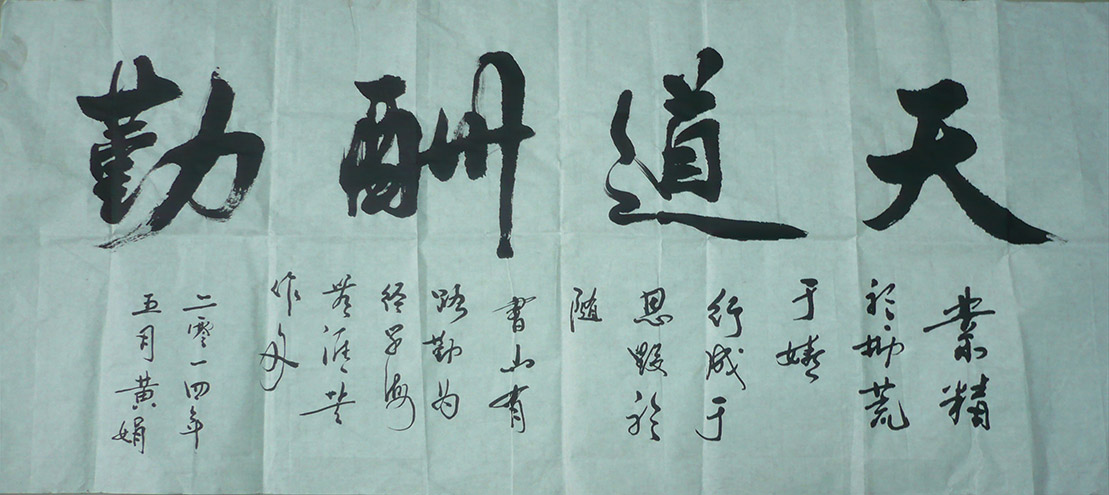 天道酬勤
業精
於勤荒
于嬉
行成于
思毁於
随
書山有
路勤为
径学海
無涯苦
作舟
二零一四年
五月黄娟